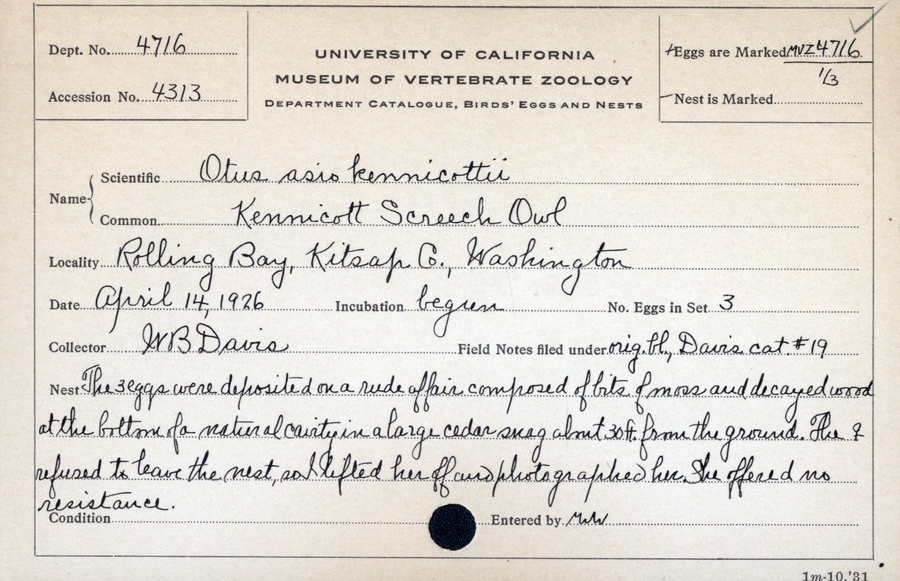 Dept. No. 4716
Accession No. 4313
UNIVERSITY OF CALIFORNIA
MUSEUM OF VERTEBRATE ZOOLOGY
DEPARTMENT CATALOGUE, BIRDS' EGGS AND NESTS
Eggs are Marked MVZ4716
1/3
Nest is Marked
Name
Scientific Otus asio kennicottii
Common Kennicott Screech Owl
Locality Rolling Bay, Kitsap Co., Washington
Date April 14, 1926 Incubation begun No. Eggs in Set 3
Collector WB Davis Field Notes filed under orig. bl., Davis cat. #19
Nest The 3 eggs were deposited on a rude affair composed of bits of moss and decayed wood
at the bottom of a natural cavity in a large cedar snag about 30 ft. from the ground. The ♀
refused to leave the nest, so I lifted her off and photographed her. She offered no
resistance.
Condition Entered by
1m-10,'31